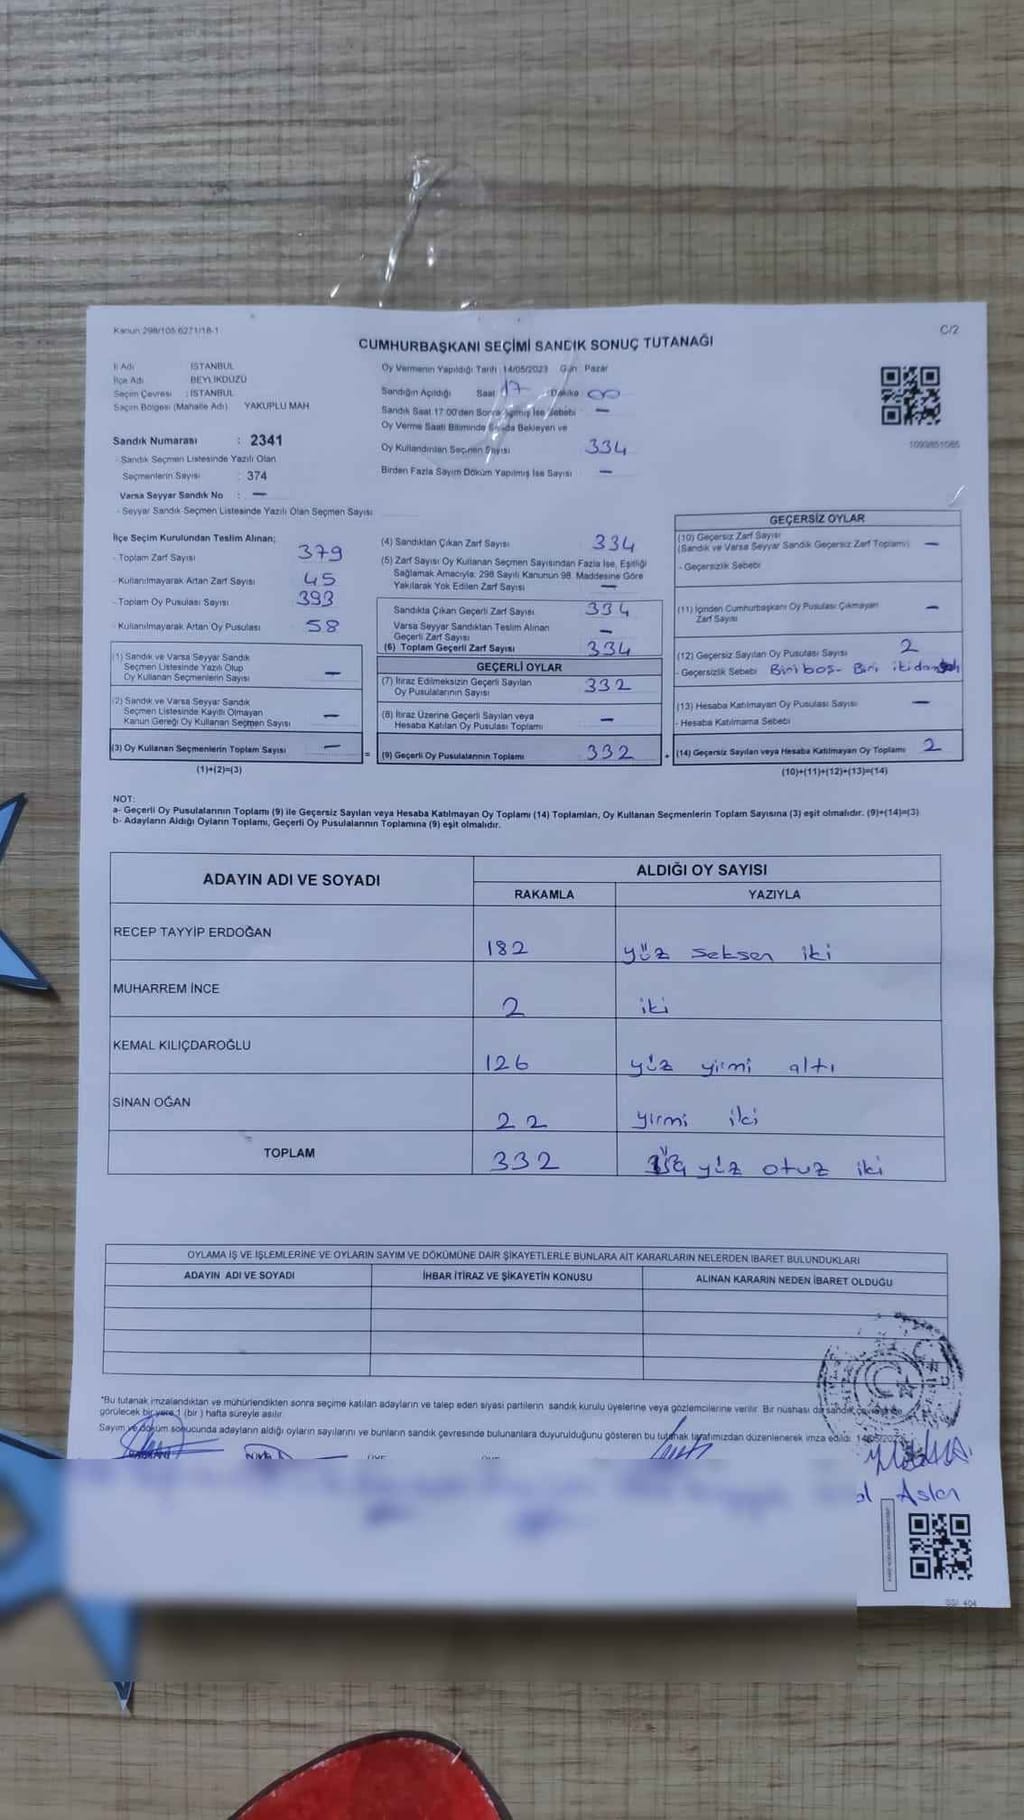 Kanun 298/105 6271/18-1
C/2
CUMHURBAŞKANI SEÇİMİ SANDIK SONUÇ TUTANAĞI
İl Adı İSTANBUL
İlçe Adı BEYLİKDÜZÜ
Seçim Çevresi : İSTANBUL
Seçim Bölgesi (Mahalle Adı) YAKUPLU MAH
Sandık Numarası : 2341
- Sandık Seçmen Listesinde Yazılı Olan
Seçmenlerin Sayısı : 374
Varsa Seyyar Sandık No : —
- Seyyar Sandık Seçmen Listesinde Yazılı Olan Seçmen Sayısı
Oy Vermenin Yapıldığı Tarih :14/05/2023 Gün: Pazar
Sandığın Açıldığı Saat 17 Dakika 00
Sandık Saat 17:00'den Sonra Açılmış İse Sebebi —
Oy Verme Saati Bitiminde Sırada Bekleyen ve
Oy Kullandırılan Seçmen Sayısı 334
Birden Fazla Sayım Döküm Yapılmış İse Sayısı —
1093851065
İlçe Seçim Kurulundan Teslim Alınan;
- Toplam Zarf Sayısı 379
- Kullanılmayarak Artan Zarf Sayısı 45
- Toplam Oy Pusulası Sayısı 393
- Kullanılmayarak Artan Oy Pusulası 58
(1) Sandık ve Varsa Seyyar Sandık
Seçmen Listesinde Yazılı Olup
Oy Kullanan Seçmenlerin Sayısı —
(2) Sandık ve Varsa Seyyar Sandık
Seçmen Listesinde Kayıtlı Olmayan
Kanun Gereği Oy Kullanan Seçmen Sayısı —
(3) Oy Kullanan Seçmenlerin Toplam Sayısı —
(1)+(2)=(3)
=
(4) Sandıktan Çıkan Zarf Sayısı 334
(5) Zarf Sayısı Oy Kullanan Seçmen Sayısından Fazla İse, Eşitliği
Sağlamak Amacıyla; 298 Sayılı Kanunun 98. Maddesine Göre
Yakılarak Yok Edilen Zarf Sayısı —
Sandıkta Çıkan Geçerli Zarf Sayısı 334
Varsa Seyyar Sandıktan Teslim Alınan
Geçerli Zarf Sayısı —
(6) Toplam Geçerli Zarf Sayısı 334
GEÇERLİ OYLAR
(7) İtiraz Edilmeksizin Geçerli Sayılan
Oy Pusulalarının Sayısı 332
(8) İtiraz Üzerine Geçerli Sayılan veya
Hesaba Katılan Oy Pusulası Toplamı —
(9) Geçerli Oy Pusulalarının Toplamı 332
+
GEÇERSİZ OYLAR
(10) Geçersiz Zarf Sayısı
(Sandık ve Varsa Seyyar Sandık Geçersiz Zarf Toplamı) —
- Geçersizlik Sebebi
(11) İçinden Cumhurbaşkanı Oy Pusulası Çıkmayan
Zarf Sayısı —
(12) Geçersiz Sayılan Oy Pusulası Sayısı 2
- Geçersizlik Sebebi Biri boş - Biri
(13) Hesaba Katılmayan Oy Pusulası Sayısı —
- Hesaba Katılmama Sebebi
(14) Geçersiz Sayılan veya Hesaba Katılmayan Oy Toplamı 2
(10)+(11)+(12)+(13)=(14)
NOT:
a- Geçerli Oy Pusulalarının Toplamı (9) ile Geçersiz Sayılan veya Hesaba Katılmayan Oy Toplamı (14) Toplamları, Oy Kullanan Seçmenlerin Toplam Sayısına (3) eşit olmalıdır. (9)+(14)=(3)
b- Adayların Aldığı Oyların Toplamı, Geçerli Oy Pusulalarının Toplamına (9) eşit olmalıdır.
ADAYIN ADI VE SOYADI ALDIĞI OY SAYISI
RAKAMLA YAZIYLA
RECEP TAYYİP ERDOĞAN 182 yüz seksen iki
MUHARREM İNCE 2 iki
KEMAL KILIÇDAROĞLU 126 yüz yirmi altı
SİNAN OĞAN 22 yirmi iki
TOPLAM 332 üç yüz otuz iki
OYLAMA İŞ VE İŞLEMLERİNE VE OYLARIN SAYIM VE DÖKÜMÜNE DAİR ŞİKAYETLERLE BUNLARA AİT KARARLARIN NELERDEN İBARET BULUNDUKLARI
ADAYIN ADI VE SOYADI İHBAR İTİRAZ VE ŞİKAYETİN KONUSU ALINAN KARARIN NEDEN İBARET OLDUĞU
*Bu tutanak imzalandıktan ve mühürlendikten sonra seçime katılan adayların ve talep eden siyasi partilerin sandık kurulu üyelerine veya gözlemcilerine verilir. Bir nüshası da sandık
görülecek bir yere 1 (bir) hafta süreyle asılır.
Sayım ve döküm sonucunda adayların aldığı oyların sayılarını ve bunların sandık çevresinde bulunanlara duyurulduğunu gösteren bu tutanak tarafımızdan düzenlenerek imza edildi.
Aslan